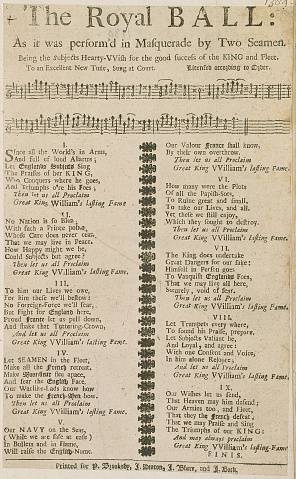 The Royal BALL:
As it was perform'd in Masquerade by Two Seamen.
Being the Subjects Hearty-VVish for the good success of the KING and Fleet.
To an Excellent New Tune, Sung at Court. Licensed according to Order.
I.
Since all the World's in Arms,
And full of loud Alarms;
Let Englands Subjects Sing
The Praises of her KING,
Who Conquers where he goes,
And Triumphs o're his Foes;
Then let us all Proclaim
Great King VVilliam's lasting Fame.
II.
No Nation is so Blest,
With such a Prince possest,
Whose Care does never cease,
That we may live in Peace.
How Happy might we be,
Could Subjects but agree?
Then let us all Proclaim
Great King VVilliam's lasting Fame.
III.
To him our Lives we owe,
For him these we'll bestow;
No Foreign-Force we'll fear,
But Fight for England here.
Proud France let us pull down,
And shake that Tottering-Crown,
And let us all Proclaim
Great King VVilliam's lasting Fame.
IV.
Let SEAMEN in the Fleet,
Make all the French retreat.
Make
and fear the English Face.
Our Warlike-Lads know how
To make the French-Men bow.
Then let us all Proclaim
Great King VVilliam's lasting Fame.
V.
Our NAVY on the Seas,
(While we are safe at ease)
In Bullets and in flame,
Will raise the English-Name.
Our Valour France shall know,
By their own overthrow.
Then let us all Proclaim
Great King VVilliam's lasting Fame.
VI.
How many were the Plots
Of all the Popish-Sots,
To Ruine great and small,
To take our Lives, and all.
Yet these we still enjoy,
Which they sought to destroy.
Then let us all Proclaim
Great King VVilliam's lasting Fame.
VII.
The King does undertake
Great Dangers for our sake;
Himself in Person goes
To Vanquish Englands Foes,
That we may live all here,
Securely, void of fear.
Then let us all Proclaim
Great King VVilliam's lasting Fame.
VIII.
Let Trumpets every where,
To sound his Praise, prepare.
Let Subjects Valiant be,
And Loyal, and agree:
With one Consent and Voice,
In him alone Rejoyce;
And let us all Proclaim
Great King VVilliam's lasting Fame.
IX.
Our Wishes let us send,
That Heaven may him defend;
Our Armies too, and Fleet,
That they the French defeat;
That we may Praise and Sing
The Triumphs of our KING:
And may always proclaim
Great King VVilliam's lasting-Fame
FINIS.
Printed for P. Brooksby, J. Deacon, J. Blare, and J. Back.